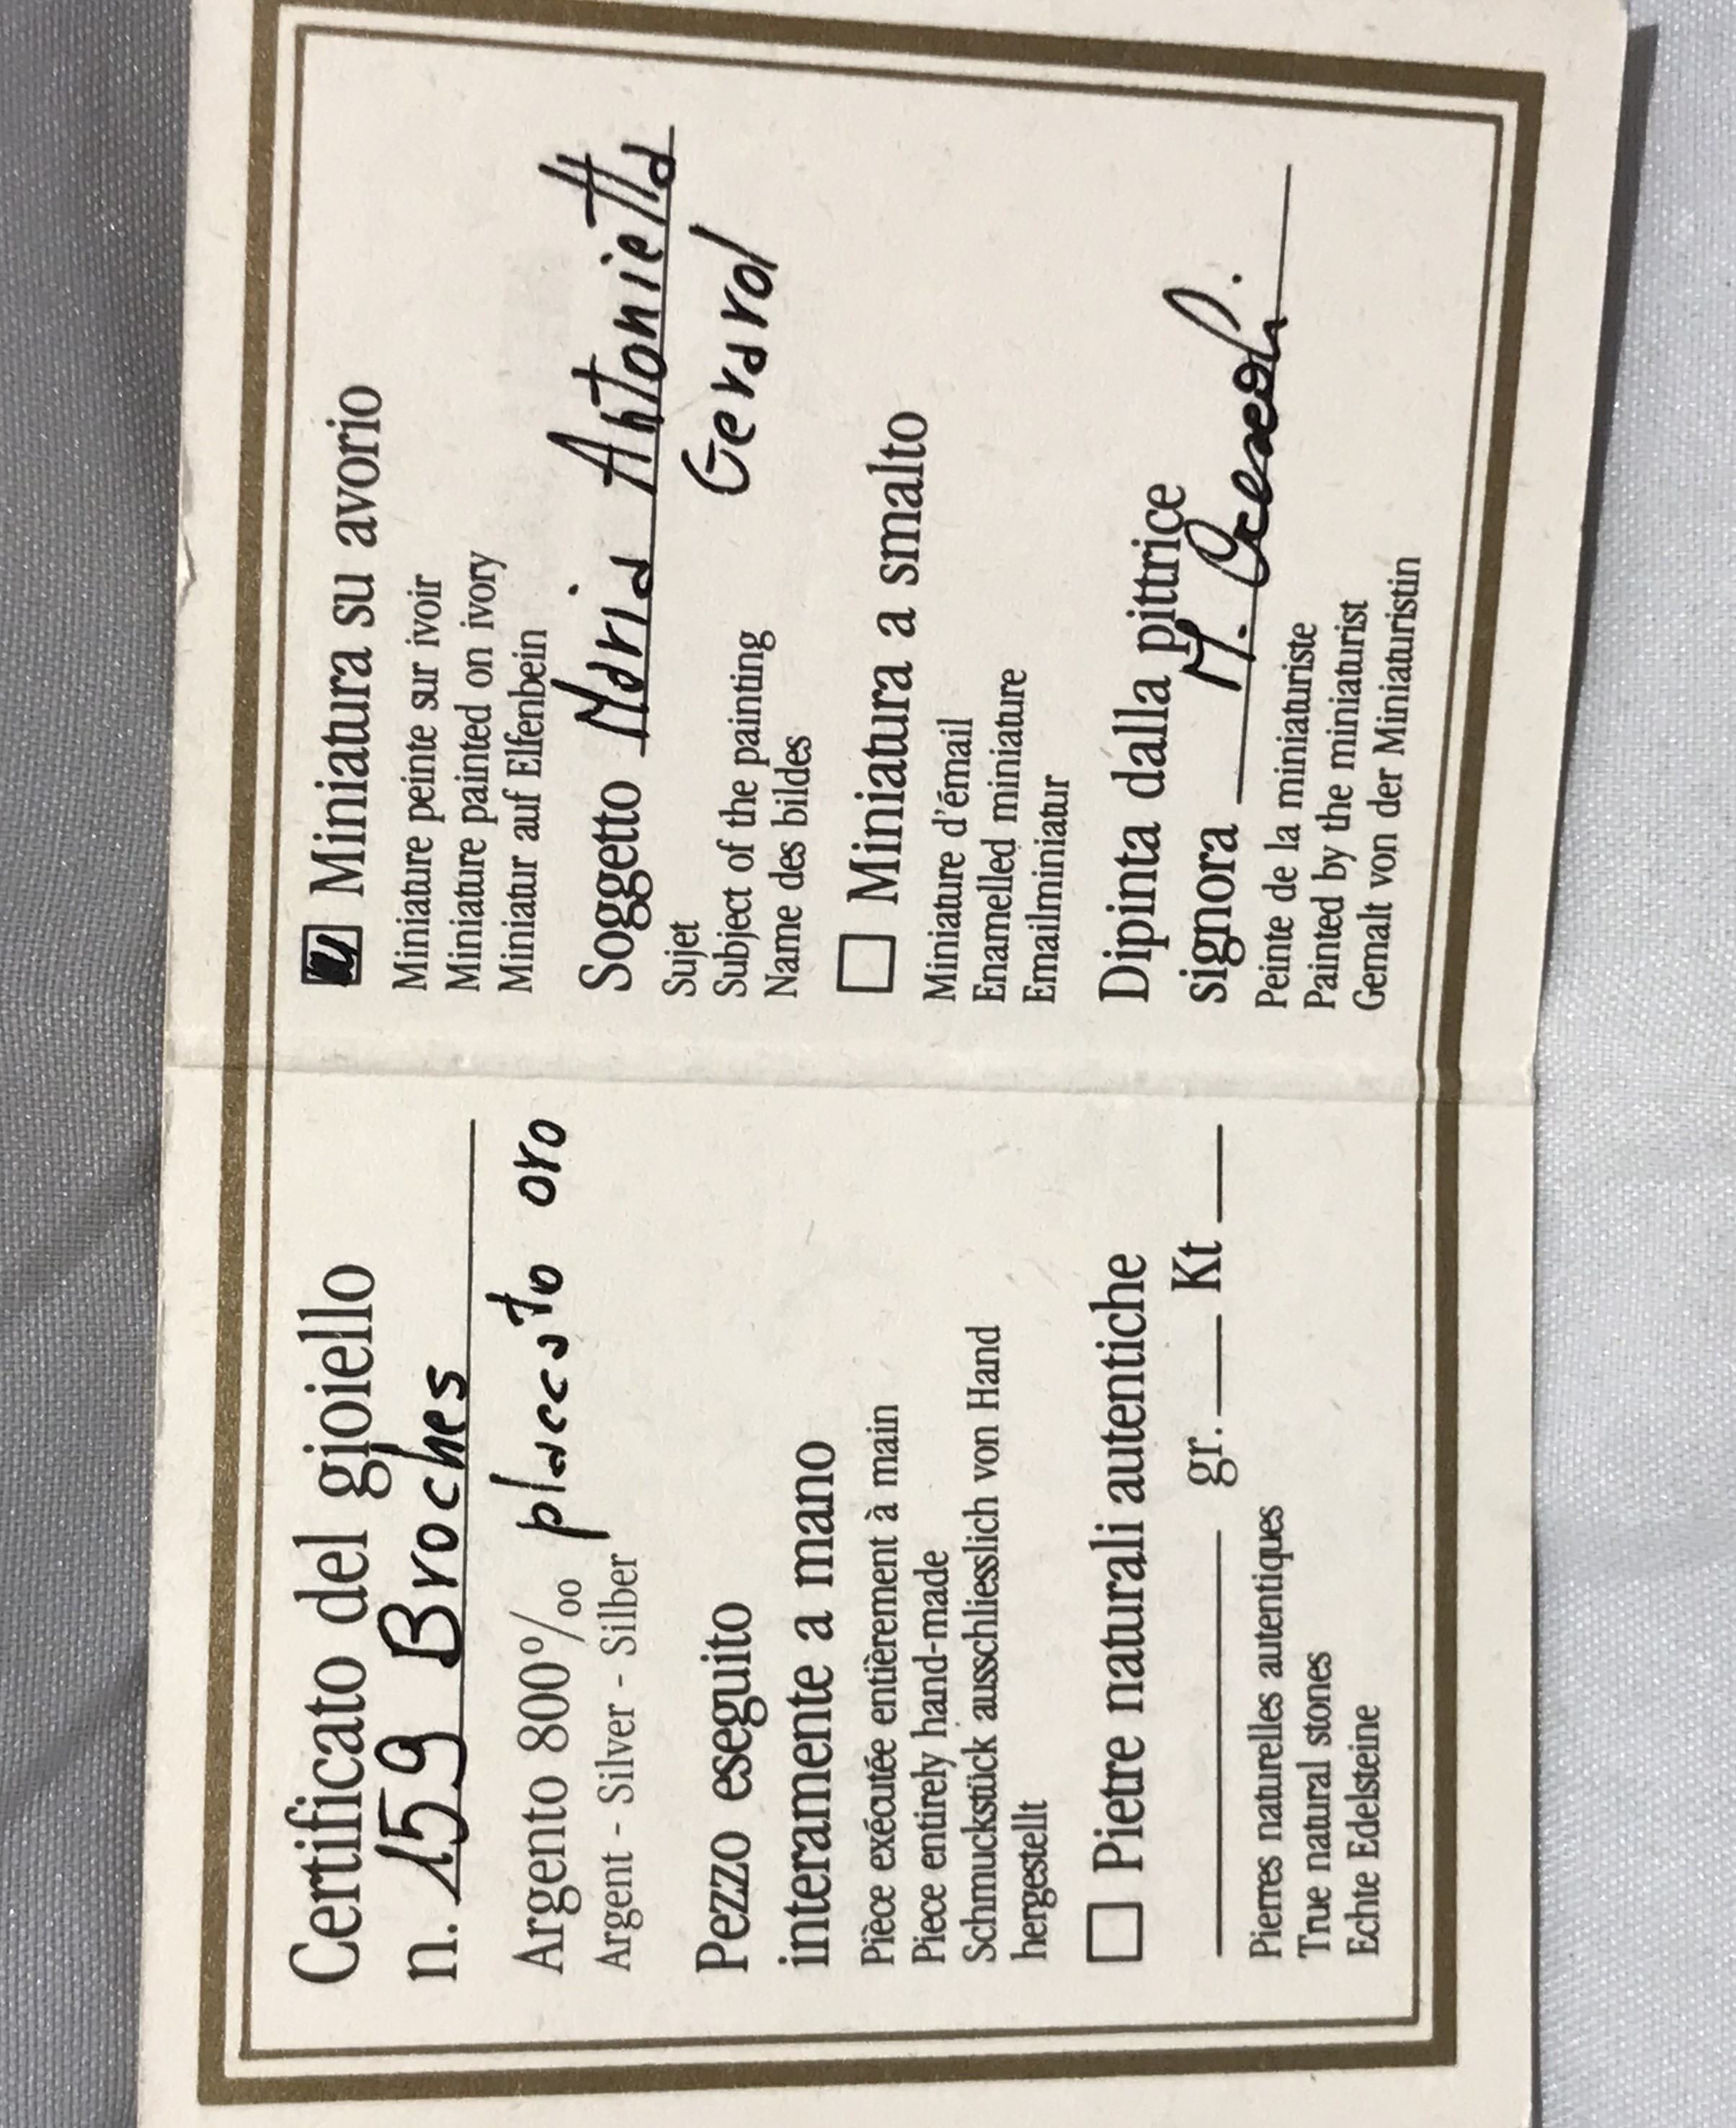 Certificato del gioiello
n. 159 Broches
Argento 800‰ placcato oro
Argent - Silver - Silber
Pezzo eseguito
interamente a mano
Pièce exécutée entièrement à main
Piece entirely hand-made
Schmuckstück ausschliesslich von Hand
hergestellt
☐ Pietre naturali autentiche
____ gr. ____ Kt ____
Pierres naturelles autentiques
True natural stones
Echte Edelsteine
Miniatura su avorio
Miniature peinte sur ivoir
Miniature painted on ivory
Miniatur auf Elfenbein
Soggetto Maria Antonietta
Gerard
Sujet
Subject of the painting
Name des bildes
☐ Miniatura a smalto
Miniature d'émail
Enamelled miniature
Emailminiatur
Dipinta dalla pittrice
signora M.
Peinte de la miniaturiste
Painted by the miniaturist
Gemalt von der Miniaturistin